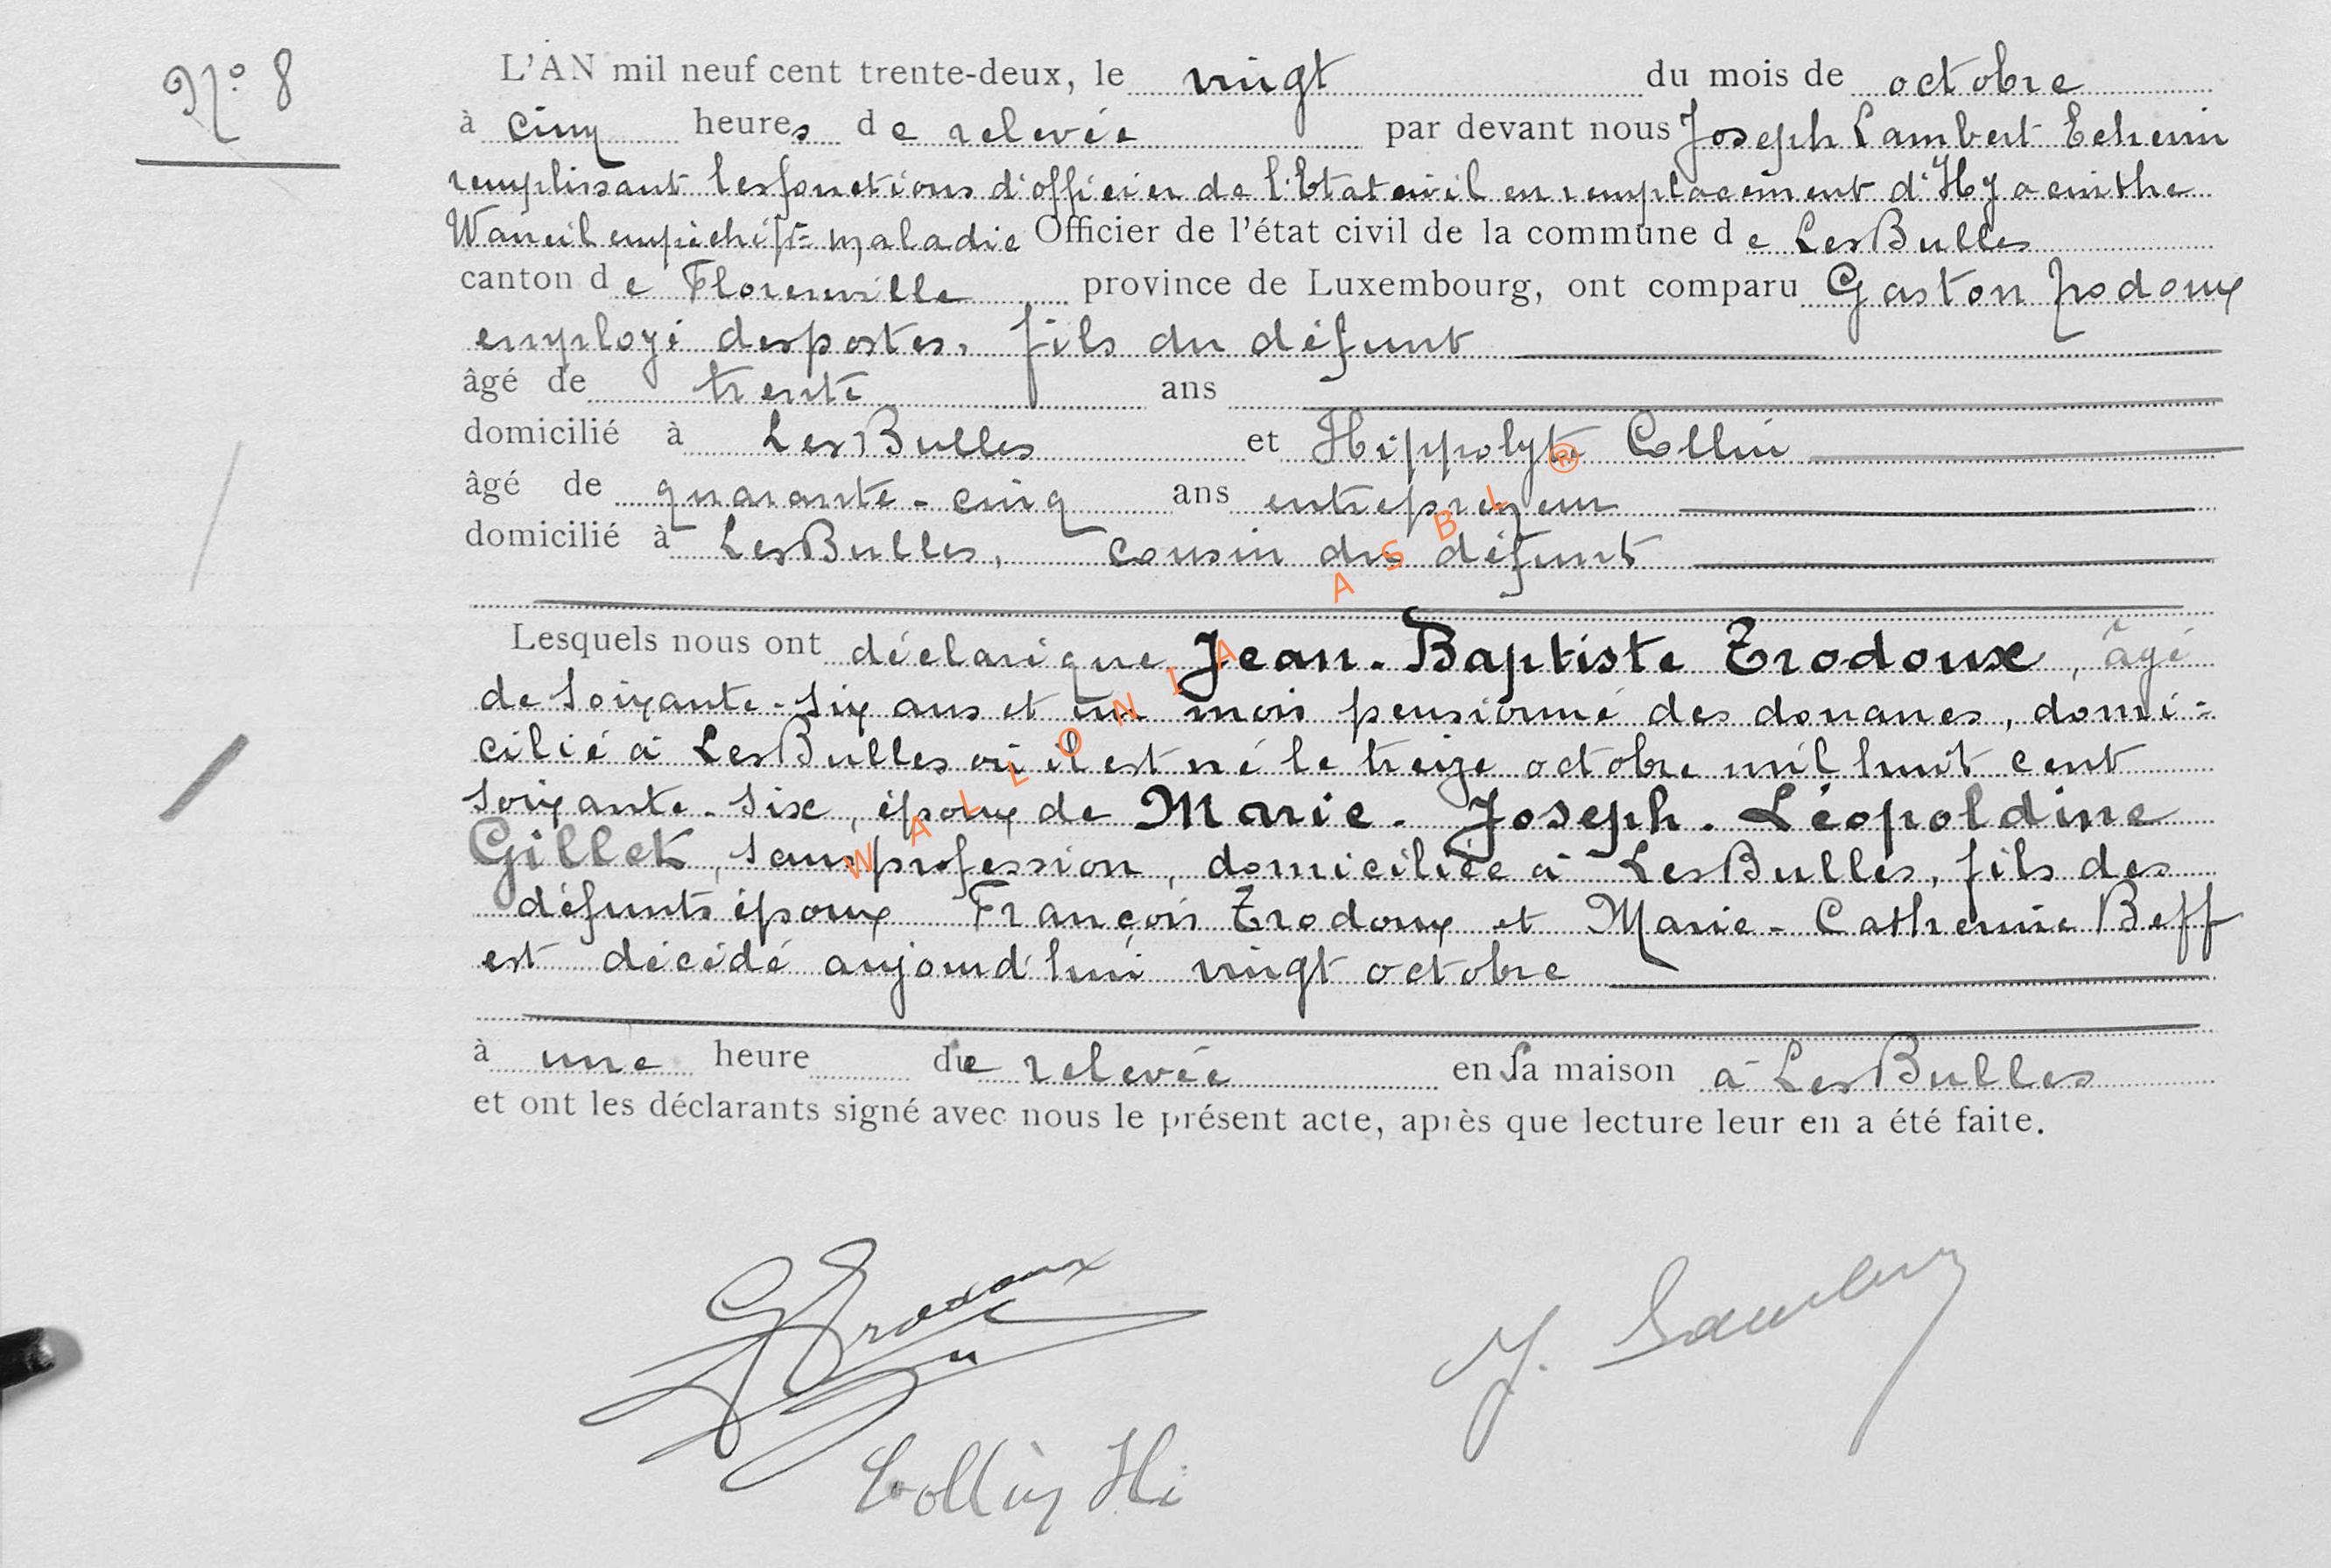 N° 8
L'AN mil neuf cent trente-deux, le vingt du mois de octobre
à cinq heures de relevée par devant nous Joseph Lambert Echerin
remplissant les fonctions d'officier de l'Etat civil en remplacement d'Hyacinthe
empêché pr maladie Officier de l'état civil de la commune de Les Bulles
canton de Florenville province de Luxembourg, ont comparu Gaston Trodoux
employé des postes, fils du défunt
âgé de trente ans
domicilié à Les Bulles et Hippolyte Collin
âgé de quarante-cinq ans entrepreneur
domicilié à Les Bulles, cousin du défunt
Lesquels nous ont déclaré que Jean-Baptiste Trodoux, âgé
de soixante-six ans et un mois pensionné des douanes, domi-
cilié à Les Bulles où il est né le treize octobre mil huit cent
soixante-six, époux de Marie-Joseph-Léopoldine
Gillet, sans profession, domiciliée à Les Bulles, fils des
défunts époux François Trodoux et Marie-Catherine Beff
est décédé aujourd'hui vingt octobre
à une heure de relevée en sa maison à Les Bulles
et ont les déclarants signé avec nous le présent acte, après que lecture leur en a été faite.
GTrodoux
J. Lambert
Collin Hi
WALLONIA ASBL ®